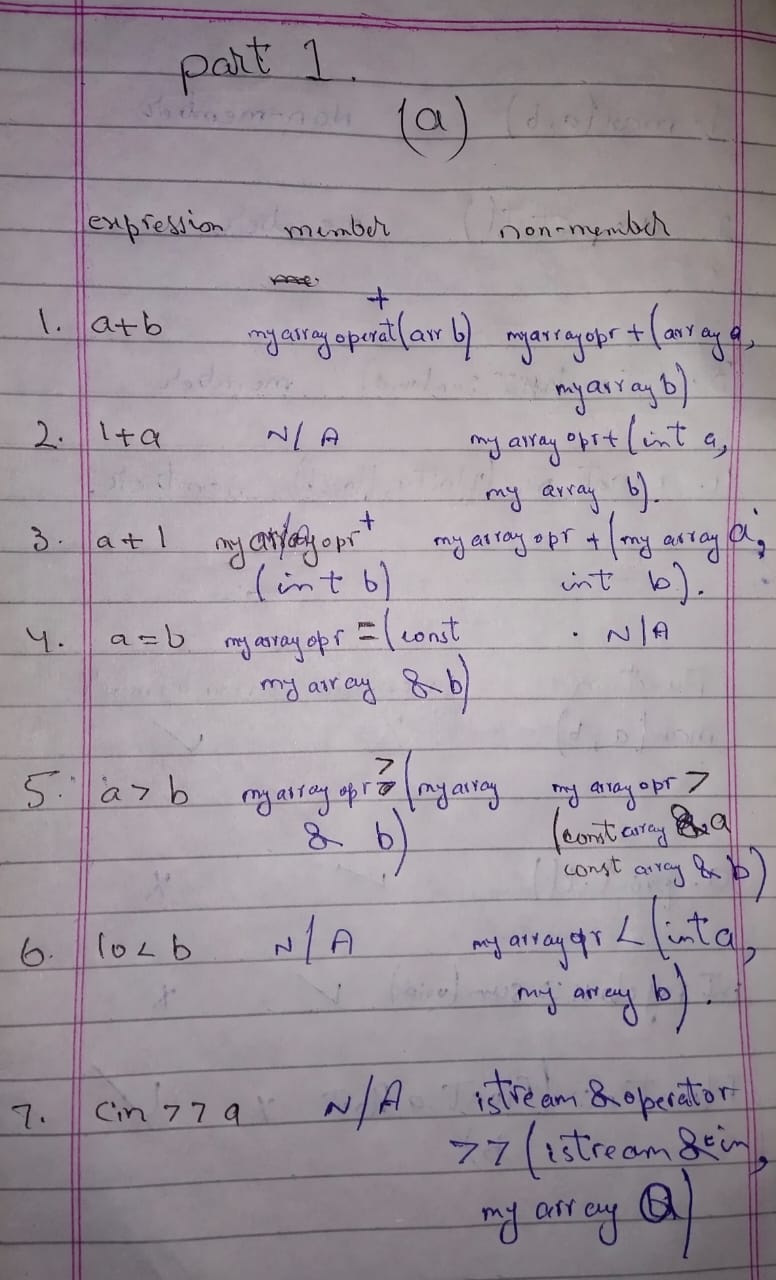 part 1.
(a)
expression member non-member
+
1. a+b myarray operat(arr b) myarrayopr + (array a,
myarray b)
2. 1+a N/A my array opr+ (int a,
my array b).
3. a+1 my array opr + my array opr + (my array a,
(int b) int b).
4. a=b my array opr = (const . N/A
my array & b)
5. a>b my array opr > (myarray my array opr >
& b) (const array & a
const array & b)
6. 10<b N/A my array opr < (int a,
my array b).
7. Cin >> a N/A istream & operator
>> (istream & in,
my array a)